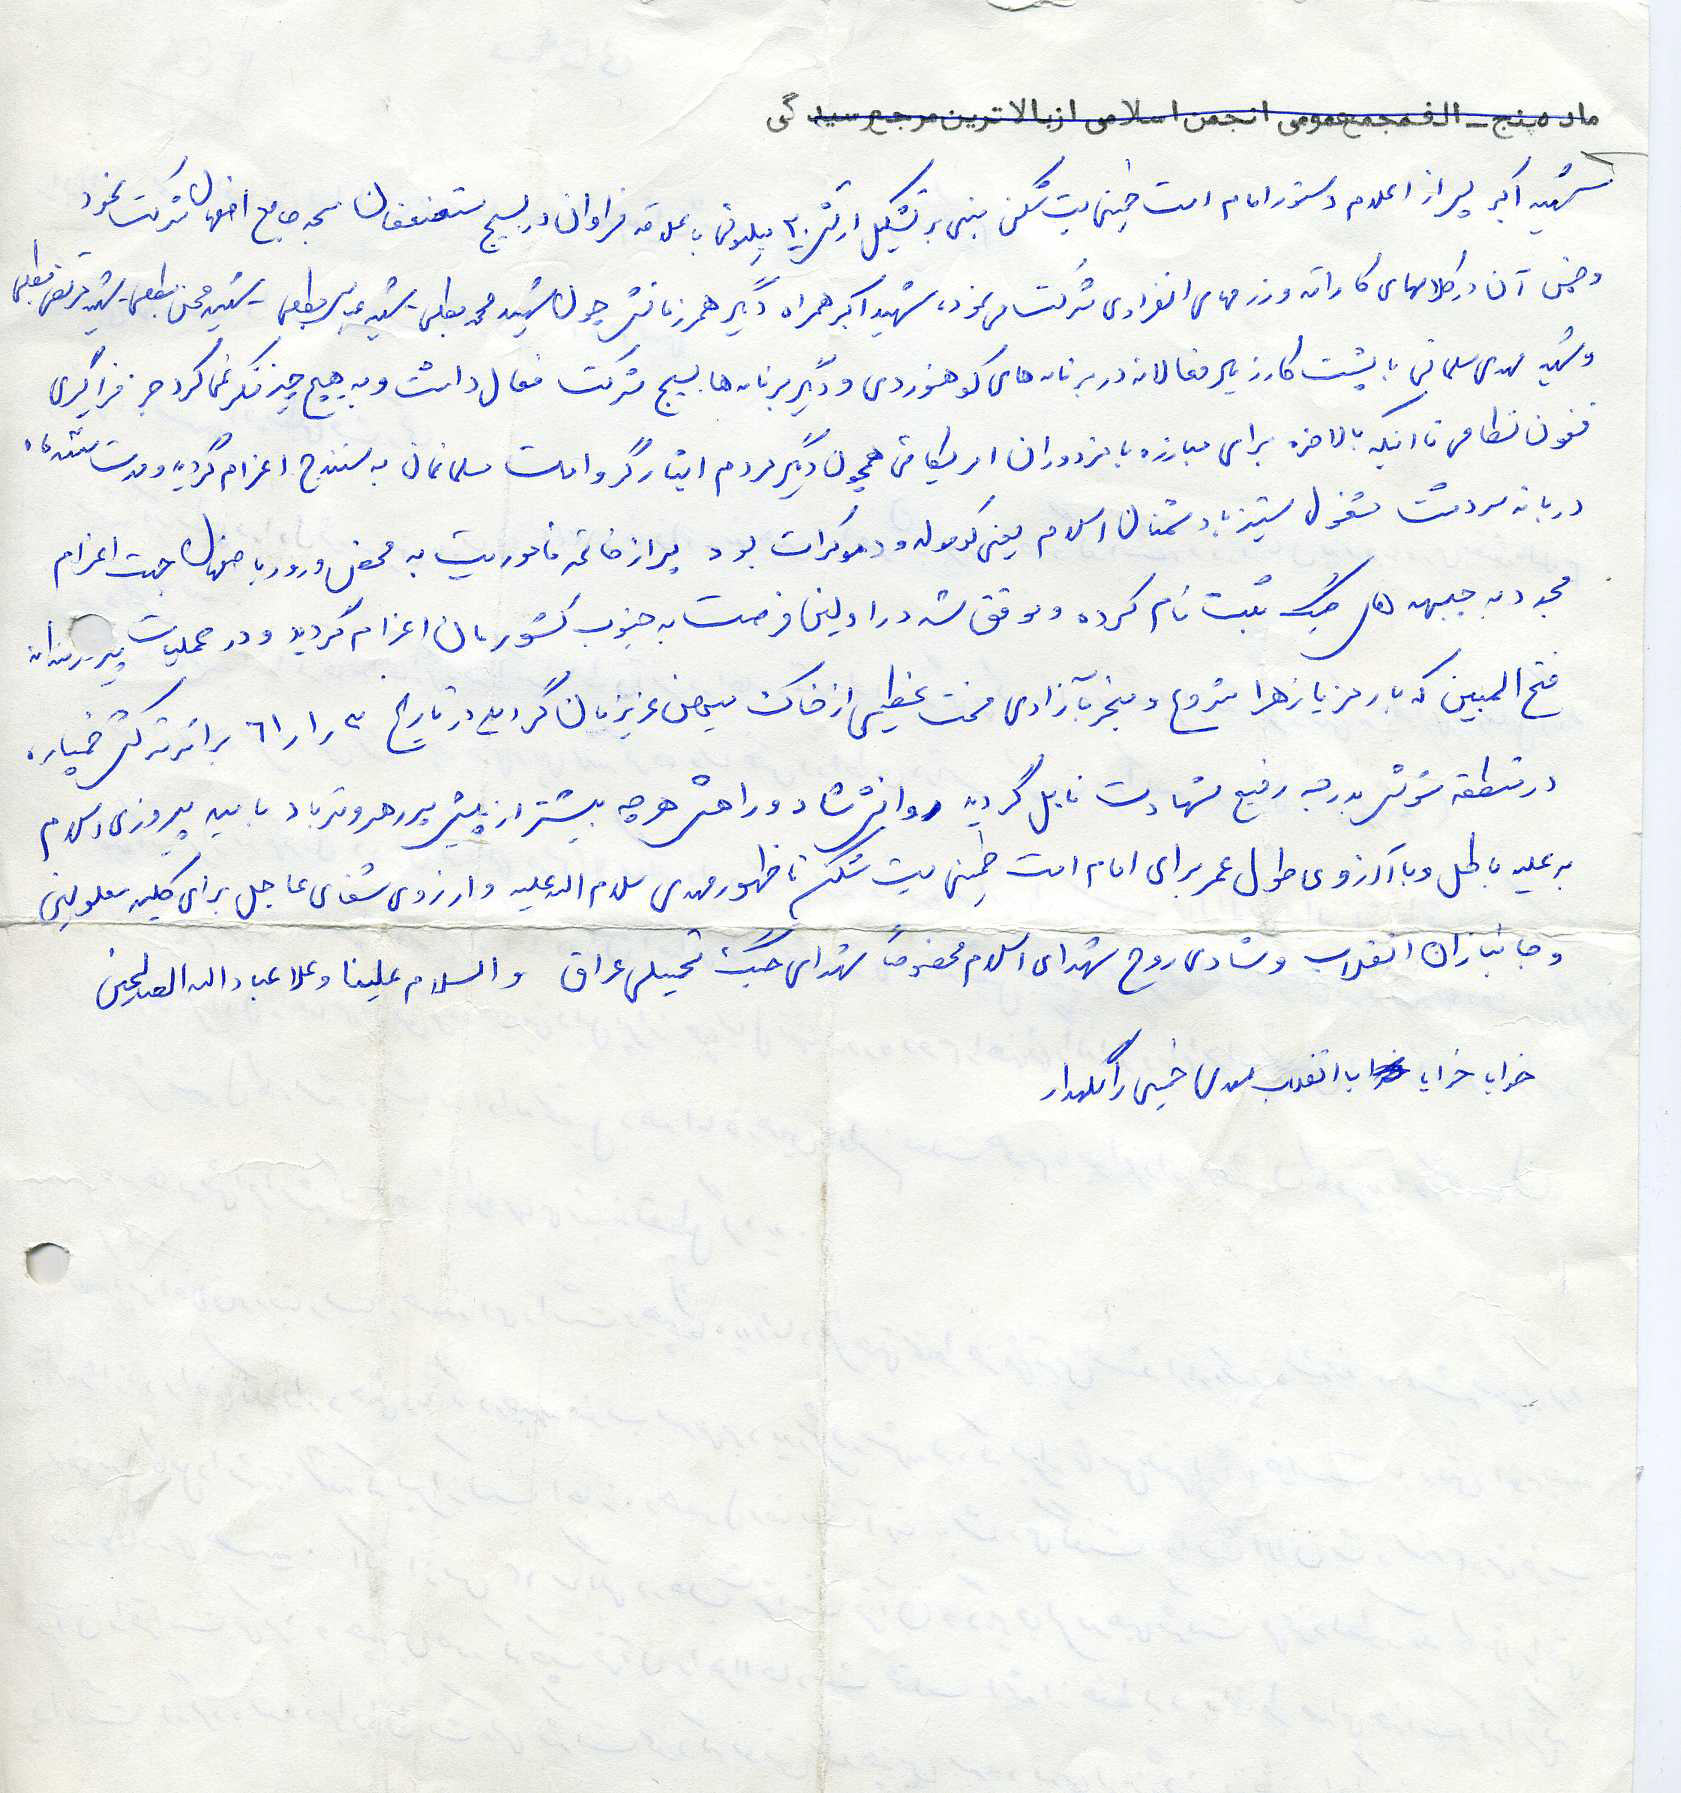 ماده پنج ــ الف مجمع عمومی انجمن اسلامی از بالاترین مرجع رسیدگی
شهید اکبر پس از اعلام دستور امام امت خمینی بت شکن مبنی بر تشکیل ارتش ۲۰ میلیونی با علاقه فراوان در بسیج مستضعفان مسجد جامع اصفهان شرکت نمود
و ضمن آن در کلاسهای کاراته و رزمهای انفرادی شرکت می نمود، شهید اکبر همراه دگیر همرزمانش چون شهید محمد مطلبی - شهید عباس مطلبی - شهید محسن مطلبی - شهید مرتضی مطلبی
و شهید مهدی سلمانی با پشت کار زیاد فعالانه در برنامه های کوهنوردی و دگیر برنامه ها بسیج شرکت فعال داشت و به هیچ چیز فکر نمی کرد جز فراگیری
فنون نظامی تا اینکه بالاخره برای مبارزه با مزدوران امریکائی همچون دگیر مردم ایثارگر و امت مسلمانمان به سنندج اعزام گردید و مدت
در بانه سردشت مشغول ستیز با دشمنان اسلام یعنی کومله و دموکرات بود پس از خاتمه ماموریت به محض ورود باصفهان جهت اعزام
مجدد به جبهه های جنگ ثبت نام کرده و موفق شد در اولین فرصت به جنوب کشورمان اعزام گردید و در عملیات
فتح المبین که با رمز یا زهرا شروع و منجر بآزادی بخش عظیمی از خاک میهن عزیزمان گردید در تاریخ ۳ ر ۱ ر ۶۱ براثر ترکش خمپاره
در منطقه شوش بدرجه رفیع شهادت نایل گردید روانش شاد و راهش هر چه بیشتر از پیش پر رهرو تر باد بامید پیروزی اسلام
به علیه باطل و با آرزوی طول عمر برای امام امت خمینی بت شکن تا ظهور مهدی سلام الله علیه و ارزوی شفای عاجل برای کلیه معلولین
و جانبازان انقلاب و شادی روح شهدای اسلام مخصوصاً شهدای جنگ تحمیلی عراق و السلام علینا و علا عباد الله الصالحین
خدایا خدایا تا انقلاب مهدی خمینی را نگهدار